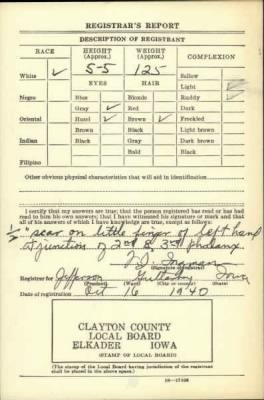 REGISTRAR'S REPORT
DESCRIPTION OF REGISTRANT
RACE HEIGHT (Approx.) WEIGHT (Approx.) COMPLEXION
White ✓ 5-5 125 Sallow
EYES HAIR Light ✓
Negro Blue Blonde Ruddy
Gray ✓ Red Dark
Oriental Hazel Brown ✓ Freckled
Brown Black Light brown
Indian Black Gray Dark brown
Bald Black
Filipino
Other obvious physical characteristics that will aid in identification
I certify that my answers are true; that the person registered has read or has had
read to him his own answers; that I have witnessed his signature or mark and that
all of his answers of which I have knowledge are true, except as follows:
1/2" scar on little finger of left hand
at junction of 2nd & 3rd phalanx.
(Signature of registrar)
Registrar for Jefferson Guttenberg Iowa
(Precinct) (City or county) (State)
Date of registration Oct 16 1940
CLAYTON COUNTY
LOCAL BOARD
ELKADER IOWA
(STAMP OF LOCAL BOARD)
(The stamp of the Local Board having jurisdiction of the registrant
shall be placed in the above space.)